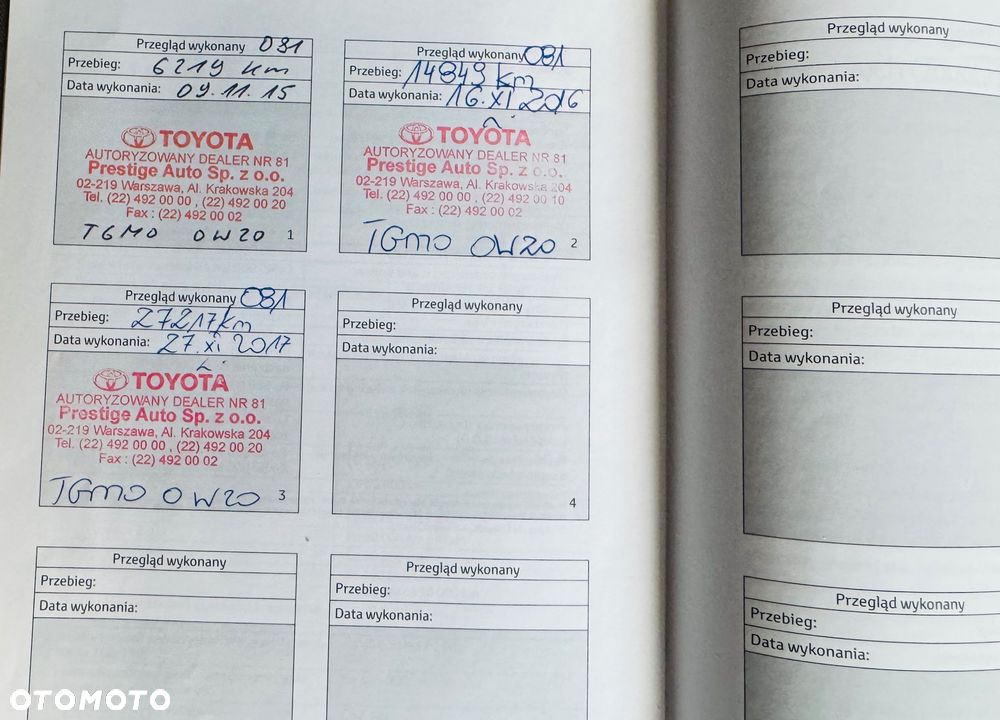 Przegląd wykonany 081
Przebieg: 6219 km
Data wykonania: 09.11.15
TOYOTA
AUTORYZOWANY DEALER NR 81
Prestige Auto Sp. z o.o.
02-219 Warszawa, Al. Krakowska 204
Tel. (22) 492 00 00 , (22) 492 00 20
Fax : (22) 492 00 02
TGMO 0W20 1
Przegląd wykonany 081
Przebieg: 14849 km
Data wykonania: 16.XI 2016
TOYOTA
AUTORYZOWANY DEALER NR 81
Prestige Auto Sp. z o.o.
02-219 Warszawa, Al. Krakowska 204
Tel. (22) 492 00 00 , (22) 492 00 10
Fax : (22) 492 00 02
TGMO 0W20 2
Przegląd wykonany 081
Przebieg: 27217 km
Data wykonania: 27.XI 2017
TOYOTA
AUTORYZOWANY DEALER NR 81
Prestige Auto Sp. z o.o.
02-219 Warszawa, Al. Krakowska 204
Tel. (22) 492 00 00 , (22) 492 00 20
Fax : (22) 492 00 02
TGMO 0W20 3
Przegląd wykonany
Przebieg:
Data wykonania:
4
Przegląd wykonany
Przebieg:
Data wykonania:
Przegląd wykonany
Przebieg:
Data wykonania:
Przegląd wykonany
Przebieg:
Data wykonania:
Przegląd wykonany
Przebieg:
Data wykonania:
Przegląd wykonany
Przebieg:
Data wykonania:
OTOMOTO